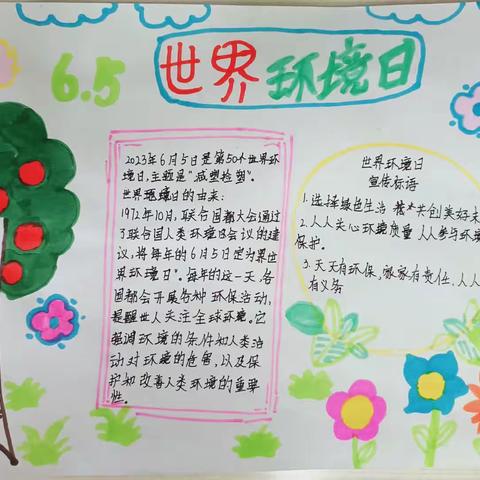 6.5
世界环境日
2023年6月5日是第50个世界环
境日,主题是"减塑捡塑"。
世界环境日的由来:
1972年10月,联合国都大会通过
了联合国人类环境会议的建
议,将每年的6月5日定为其世
界环境日"。每年的这一天,各
国都会开展各种环保活动,
提醒世人关注全球环境。它
强调环境的条件和人类活
动对环境的危害,以及保
护和改善人类环境的重要
性。
世界环境日
宣传标语
1.选择绿色生活 共创美好未
2.人人关心环境质量 人人参与环境
保护。
3.天天有环保,家家有责任,人人
有义务